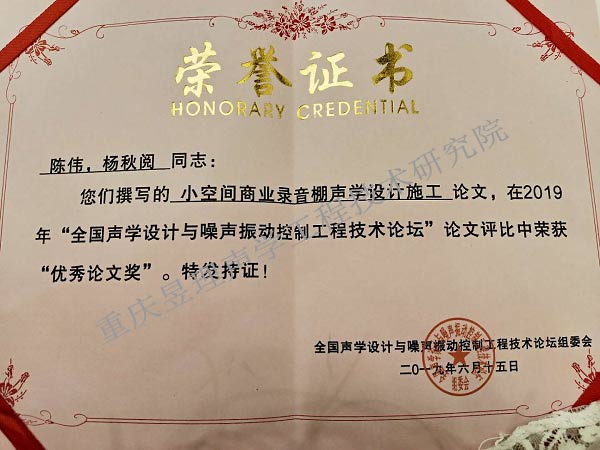 荣誉证书
HONORARY CREDENTIAL
陈伟，杨秋阅 同志：
您们撰写的 小空间商业录音棚声学设计施工 论文，在2019
年“全国声学设计与噪声振动控制工程技术论坛”论文评比中荣获
“优秀论文奖”。特发持证！
全国声学设计与噪声振动控制工程技术论坛组委会
二〇一九年六月十五日
组委会
重庆昱珽声学工程技术研究院